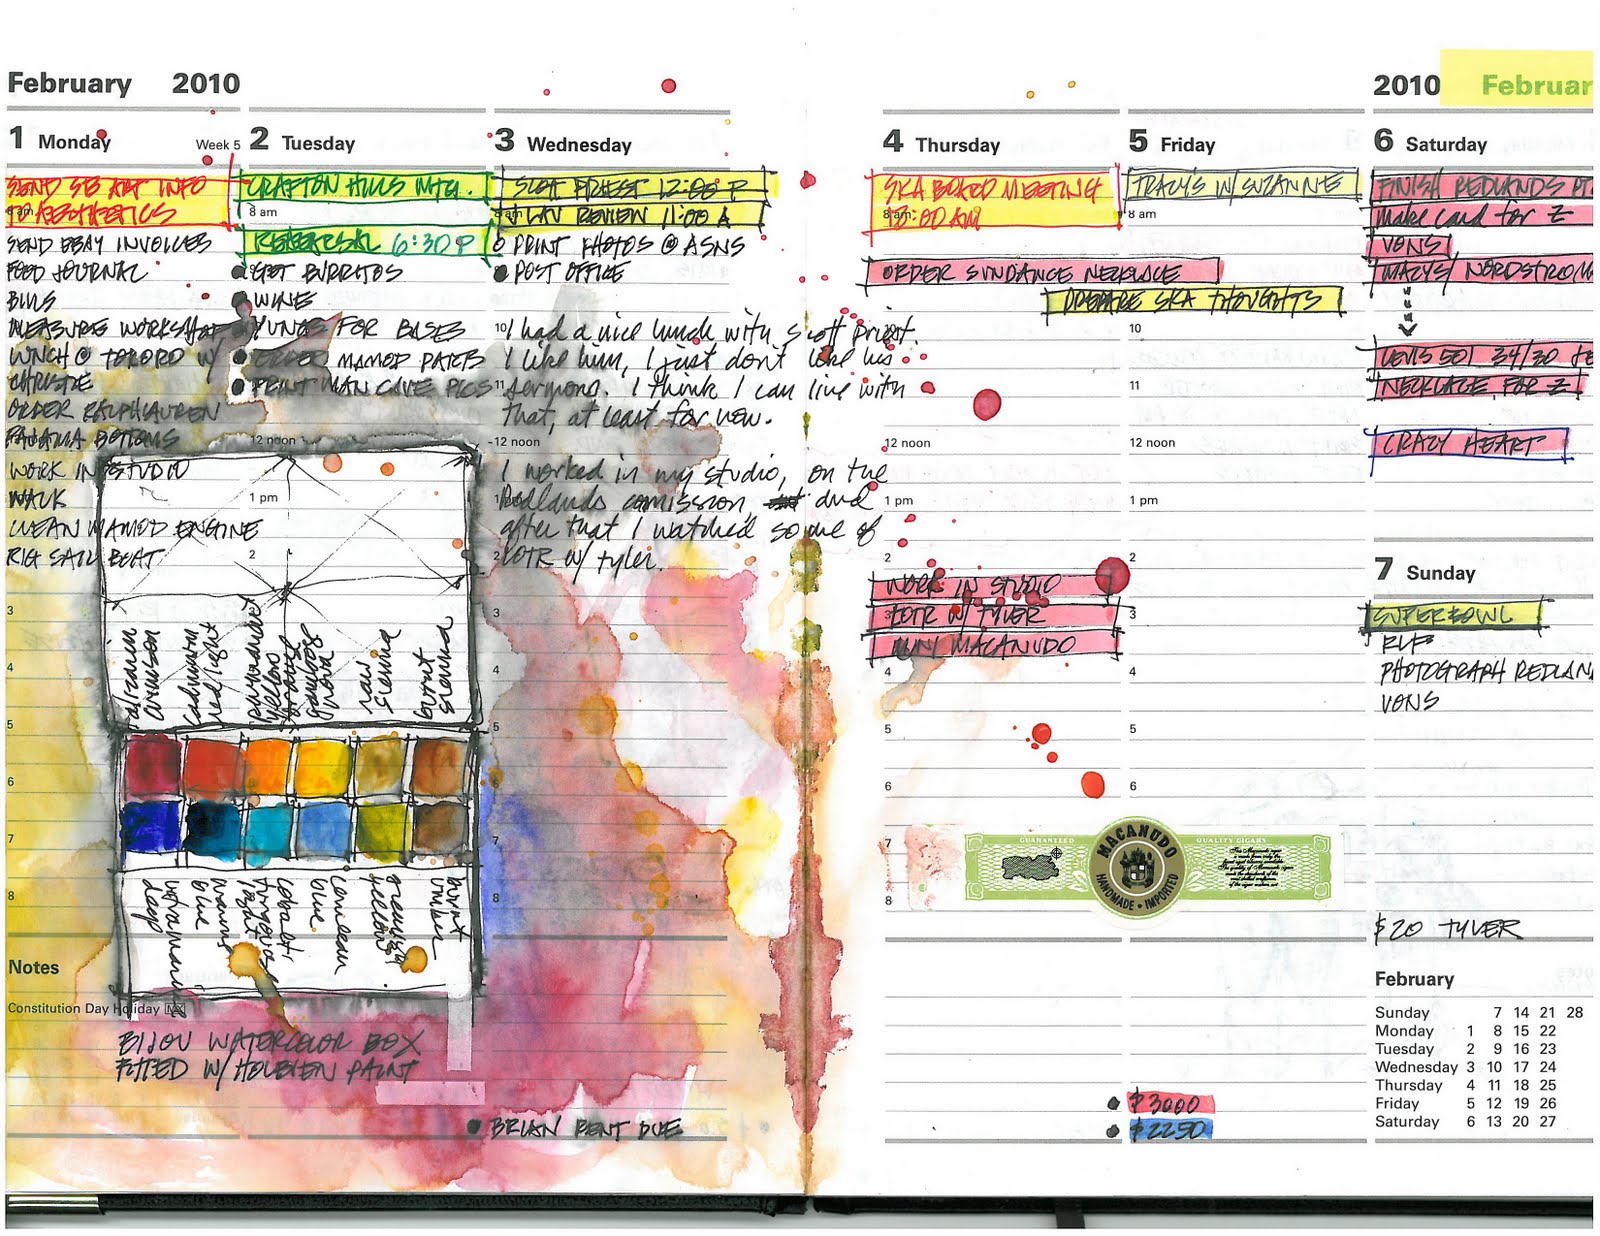 February 2010
1 Monday Week 5
SEND SB ART INFO
TO AESTHETICS
8 am
SEND EBAY INVOICES
FOOD JOURNAL
BILLS
MEASURE WORKSHOP
LUNCH @ TORORO W/
CHRISTIE
ORDER RALPH LAUREN
PAJAMA BOTTOMS
WORK IN STUDIO
WALK
CLEAN MAMOD ENGINE
RIG SAIL BOAT
3
4
5
6
7
8
Notes
Constitution Day Holiday MX
2 Tuesday
CRAFTON HILLS MTG.
8 am
REHEARSAL 6:30 P
GET BURRITOS
WINE
FOR BASES
ORDER MAMOD PARTS
PRINT MAN CAVE PICS
12 noon
1 pm
2
alizarin crimson
cadmium red light
permanent yellow orange
gamboge nova
raw sienna
burnt sienna
ultramarine deep
blue
cobalt turquoise light
cerulean blue
greenish yellow
burnt umber
BIJOU WATERCOLOR BOX
FITTED W/ HOLBEIN PAINT
3 Wednesday
SCOTT PRIEST 12:00 P
LAV REVIEW 11:00 A
PRINT PHOTOS @ ASNS
POST OFFICE
10
I had a nice lunch with scott priest.
I like him, I just don't like his
11
sermons. I think I can live with
that, at least for now.
12 noon
I worked in my studio, on the
Redlands comission, and
after that I watched some of
LOTR w/ tyler.
3
4
5
6
7
8
BRIAN RENT DUE
4 Thursday
SKA BOARD MEETING
:00 AM
8 am
ORDER SUNDANCE NECKLACE
PREPARE SKA THOUGHTS
12 noon
1 pm
2
WORK IN STUDIO
3
LOTR W/ TYLER
MINI MACANUDO
4
5
6
7
8
GUARANTEED
MACANUDO
HANDMADE • IMPORTED
QUALITY CIGARS
5 Friday
TRACY'S W/ SUZANNE
8 am
10
11
12 noon
1 pm
2
3
4
5
6
$3000
$2250
2010 Februar
6 Saturday
FINISH REDLANDS
make card for Z
VONS
MACYS/ NORDSTROM
LEVIS 501 34/30
NECKLACE FOR Z
CRAZY HEART
7 Sunday
SUPERBOWL
RLF
PHOTOGRAPH REDLAN
VONS
$20 TYLER
February
Sunday 7 14 21 28
Monday 1 8 15 22
Tuesday 2 9 16 23
Wednesday 3 10 17 24
Thursday 4 11 18 25
Friday 5 12 19 26
Saturday 6 13 20 27